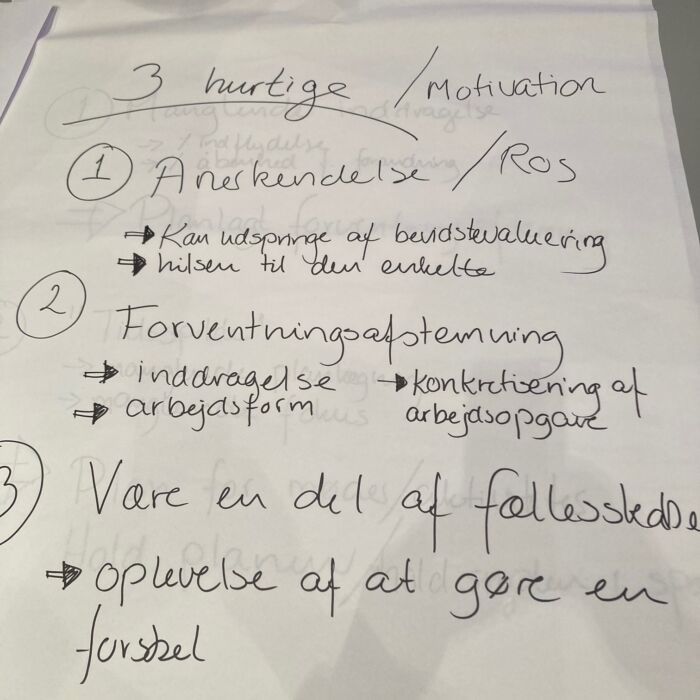 3 hurtige / Motivation
1 Anerkendelse / Ros
→ Kan udspringe af bevidstevaluering
→ hilsen til den enkelte
2 Forventningsafstemning
→ inddragelse → konkretisering af
→ arbejdsform arbejdsopgave
3 Være en del af
→ oplevelse af at gøre en
forskel